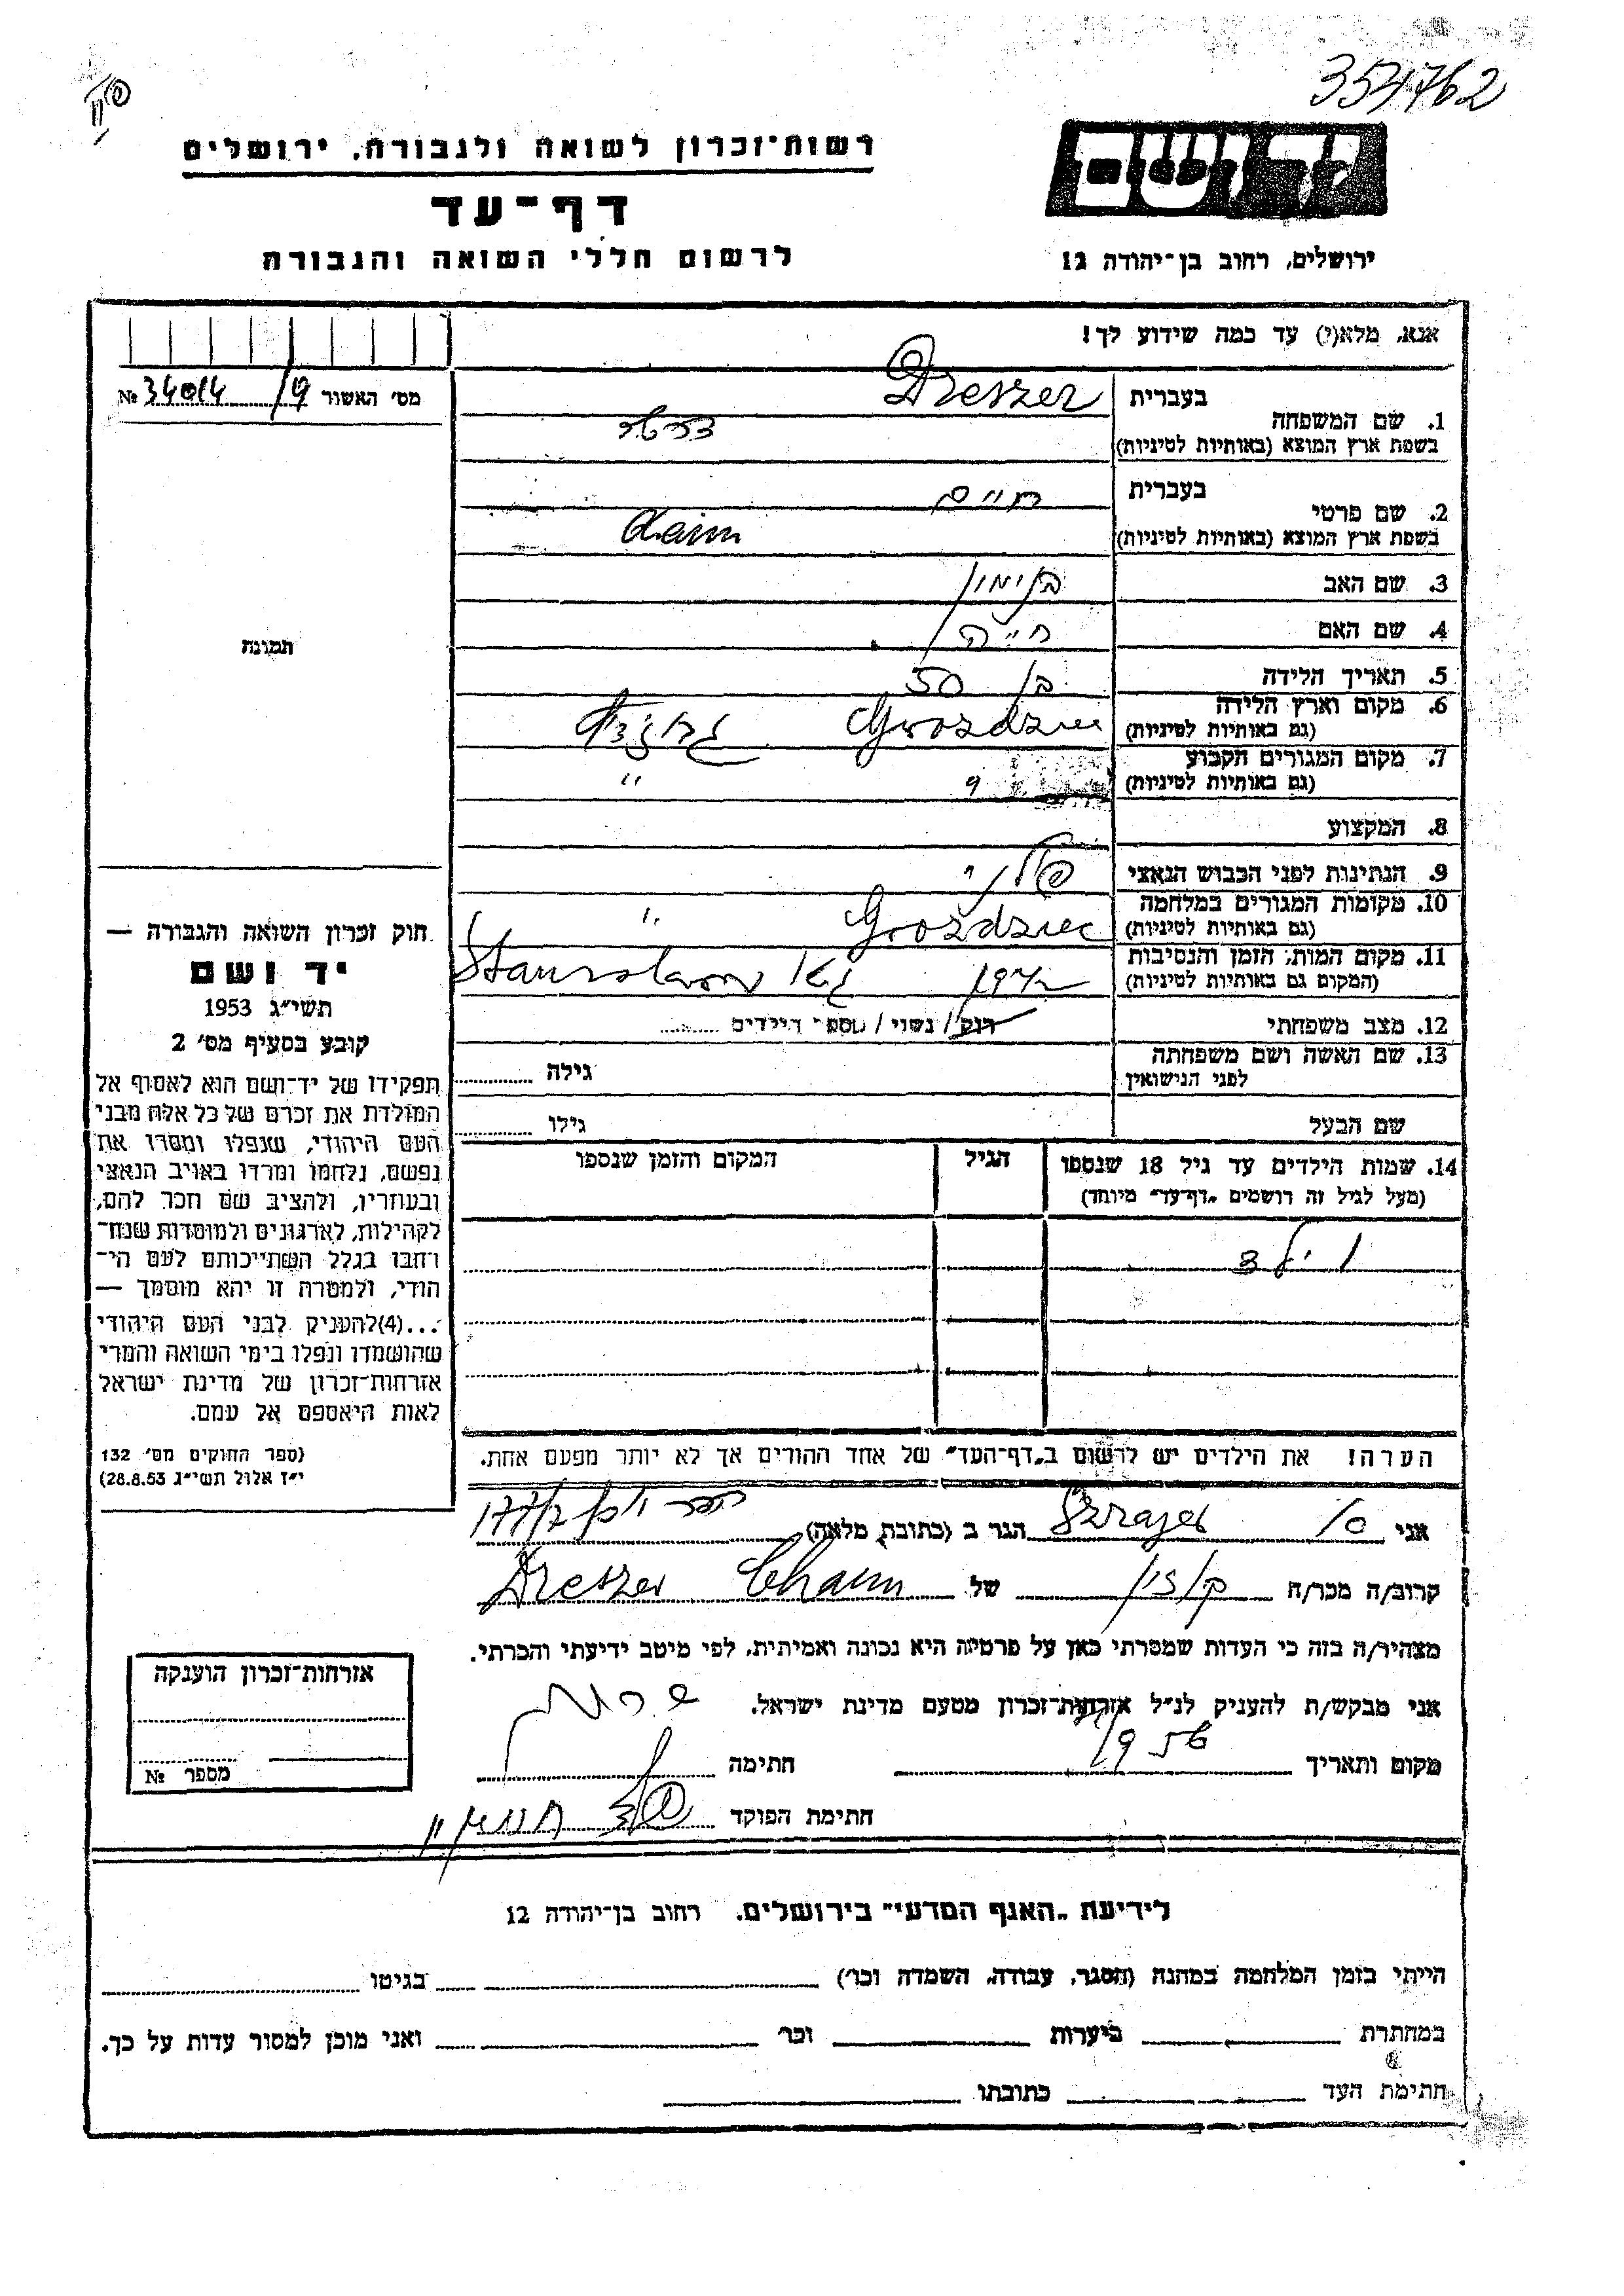 354762
רשות-זכרון לשואה ולגבורה, ירושלים
דף-עד
לרשום חללי השואה והגבורה
יד ושם
ירושלים, רחוב בן-יהודה 12
אנא, מלא(י) עד כמה שידוע לך!
מס' האשור № 34014
בעברית Dreszer
1. שם המשפחה
בשפת ארץ המוצא (באותיות לטיניות) דרשר
בעברית חיים
2. שם פרטי
בשפת ארץ המוצא (באותיות לטיניות) Chaim
3. שם האב בנימין
4. שם האם חיה
5. תאריך הלידה בן 50
6. מקום וארץ הלידה Gwozdziec
(גם באותיות לטיניות)
7. מקום המגורים הקבוע " "
(גם באותיות לטיניות)
8. המקצוע
9. הנתינות לפני הכבוש הנאצי פולני
10. מקומות המגורים במלחמה Gwozdziec "
(גם באותיות לטיניות)
11. מקום המות, הזמן והנסיבות
(המקום גם באותיות לטיניות) גטו Stanislawow
12. מצב משפחתי רווק / נשוי / מספר הילדים
13. שם האשה ושם משפחתה
לפני הנישואין גילה
שם הבעל גילו
14. שמות הילדים עד גיל 18 שנספו הגיל המקום והזמן שנספו
(מעל לגיל זה רושמים "דף-עד" מיוחד)
הערה! את הילדים יש לרשום ב"דף-העד" של אחד ההורים אך לא יותר מפעם אחת.
תמונה
חוק זכרון השואה והגבורה —
יד ושם
תשי"ג 1953
קובע בסעיף מס' 2
תפקידו של יד-ושם הוא לאסוף אל
המולדת את זכרם של כל אלה מבני
העם היהודי, שנפלו ומסרו את
נפשם, נלחמו ומרדו באויב הנאצי
ובעוזריו, ולהציב שם וזכר להם,
לקהילות, לארגונים ולמוסדות שנח-
רבו בגלל השתייכותם לעם הי-
הודי, ולמטרה זו יהא מוסמך —
...(4)להעניק לבני העם היהודי
שהושמדו ונפלו בימי השואה והמרי
אזרחות-זכרון של מדינת ישראל
לאות היאספם אל עמם.
(ספר החוקים מס' 132
י"ז אלול תשי"ג 28.8.53)
אני Szrajer הגר ב (כתובת מלאה)
קרוב/ה מכר/ה של Dreszer Chaim
מצהיר/ה בזה כי העדות שמסרתי כאן על פרטיה היא נכונה ואמיתית, לפי מיטב ידיעתי והכרתי.
אני מבקש/ת להעניק לנ"ל אזרחות-זכרון מטעם מדינת ישראל.
מקום ותאריך 1956 חתימה
חתימת הפוקד
אזרחות-זכרון הוענקה
מספר №
לידיעת "האגף המדעי" בירושלים, רחוב בן-יהודה 12
הייתי בזמן המלחמה במחנה (הסגר, עבודה, השמדה וכו') בגיטו
במחתרת ביערות וכו' ואני מוכן למסור עדות על כך.
חתימת העד כתובתו